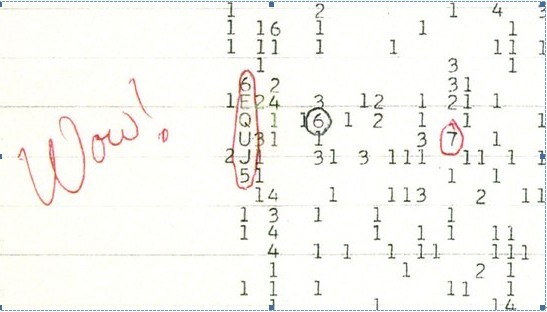 1 2 1 4 3
1 16 1 1 1
1 11 1 1 11 1
1 3 1
6 2 31
1 E 24 3 12 1 21 1
Wow!
Q 1 16 1 2 1 11 1
U 31 1 3 7 1
2 J 1 31 3 111 11 1 1
5 1 1 1
14 1 113 2 11
1 3 1 1 1
1 4 1 1 1 11
4 1 1 1 11 111
1 1 2 1
1 1 1 11 1
1 1 14